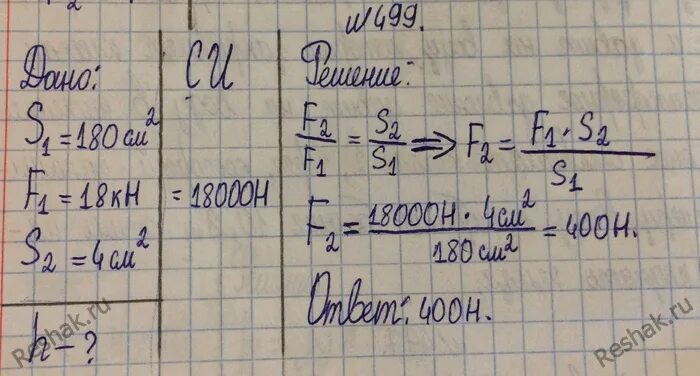 №499.
Дано:
S₁ = 180 см²
F₁ = 18 кН
S₂ = 4 см²
h - ?
СИ
= 18000Н
Решение:
F₂/F₁ = S₂/S₁ ⟹ F₂ = F₁ · S₂/S₁
F₂ = 18000Н · 4 см²/180 см² = 400Н.
Ответ: 400Н.
Reshak.ru
Reshak.ru